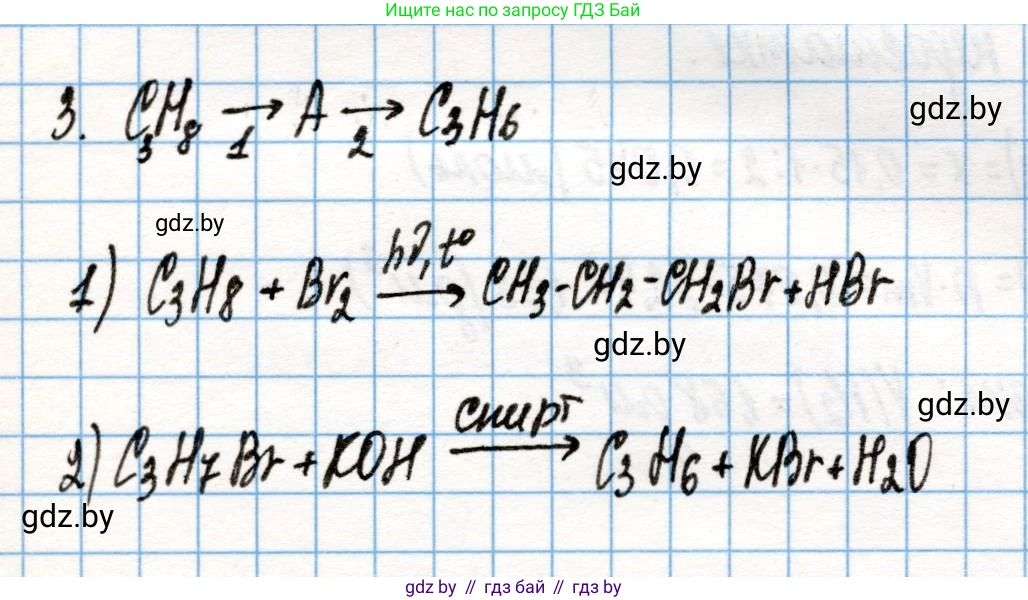 Ищите нас по запросу ГДЗ Бай
3. C₃H₈ →₁ A →₂ C₃H₆
gdz.by
gdz.by
gdz.by
1) C₃H₈ + Br₂ hν, t° → CH₃-CH₂-CH₂Br + HBr
gdz.by
gdz.by
2) C₃H₇Br + KOH спирт → C₃H₆ + KBr + H₂O
gdz.by
gdz.by // гдз бай // гдз by